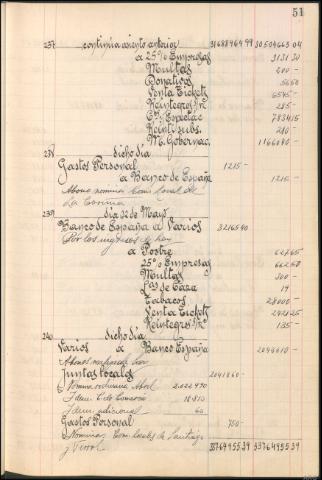 51
237 continua asiento anterior 31688464 99 30504663 04
a 25% Empresas 3131 30
Multas 200 -
Donativos 5650
Venta Tickets 6545 -
Reintegros
Espectac 783415
Reint. subs. 210 -
M. Gobernac. 1166080 -
238 dicho día
Gastos Personal 1215 -
a Banco de España 1215 -
Abono nomina Com. local de
La Coruña
239 día 22 de Mayo
Banco de España a Varios
Por los ingresos de hoy
a Postre
25% Empresas 66250
Multas 300 -
Caza 19
Tabacos 28000 -
Venta Tickets
Reintegros 135 -
240 dicho día
Varios a Banco España
Juntas Locales 2041860 -
Nomina ordinaria Abril 2.022.990
Idem 18.810
Idem adicional 60
Gastos Personal 750 -
Nominas Com. locales de Santiago
y Ferrol 33764955 39 33764955 39